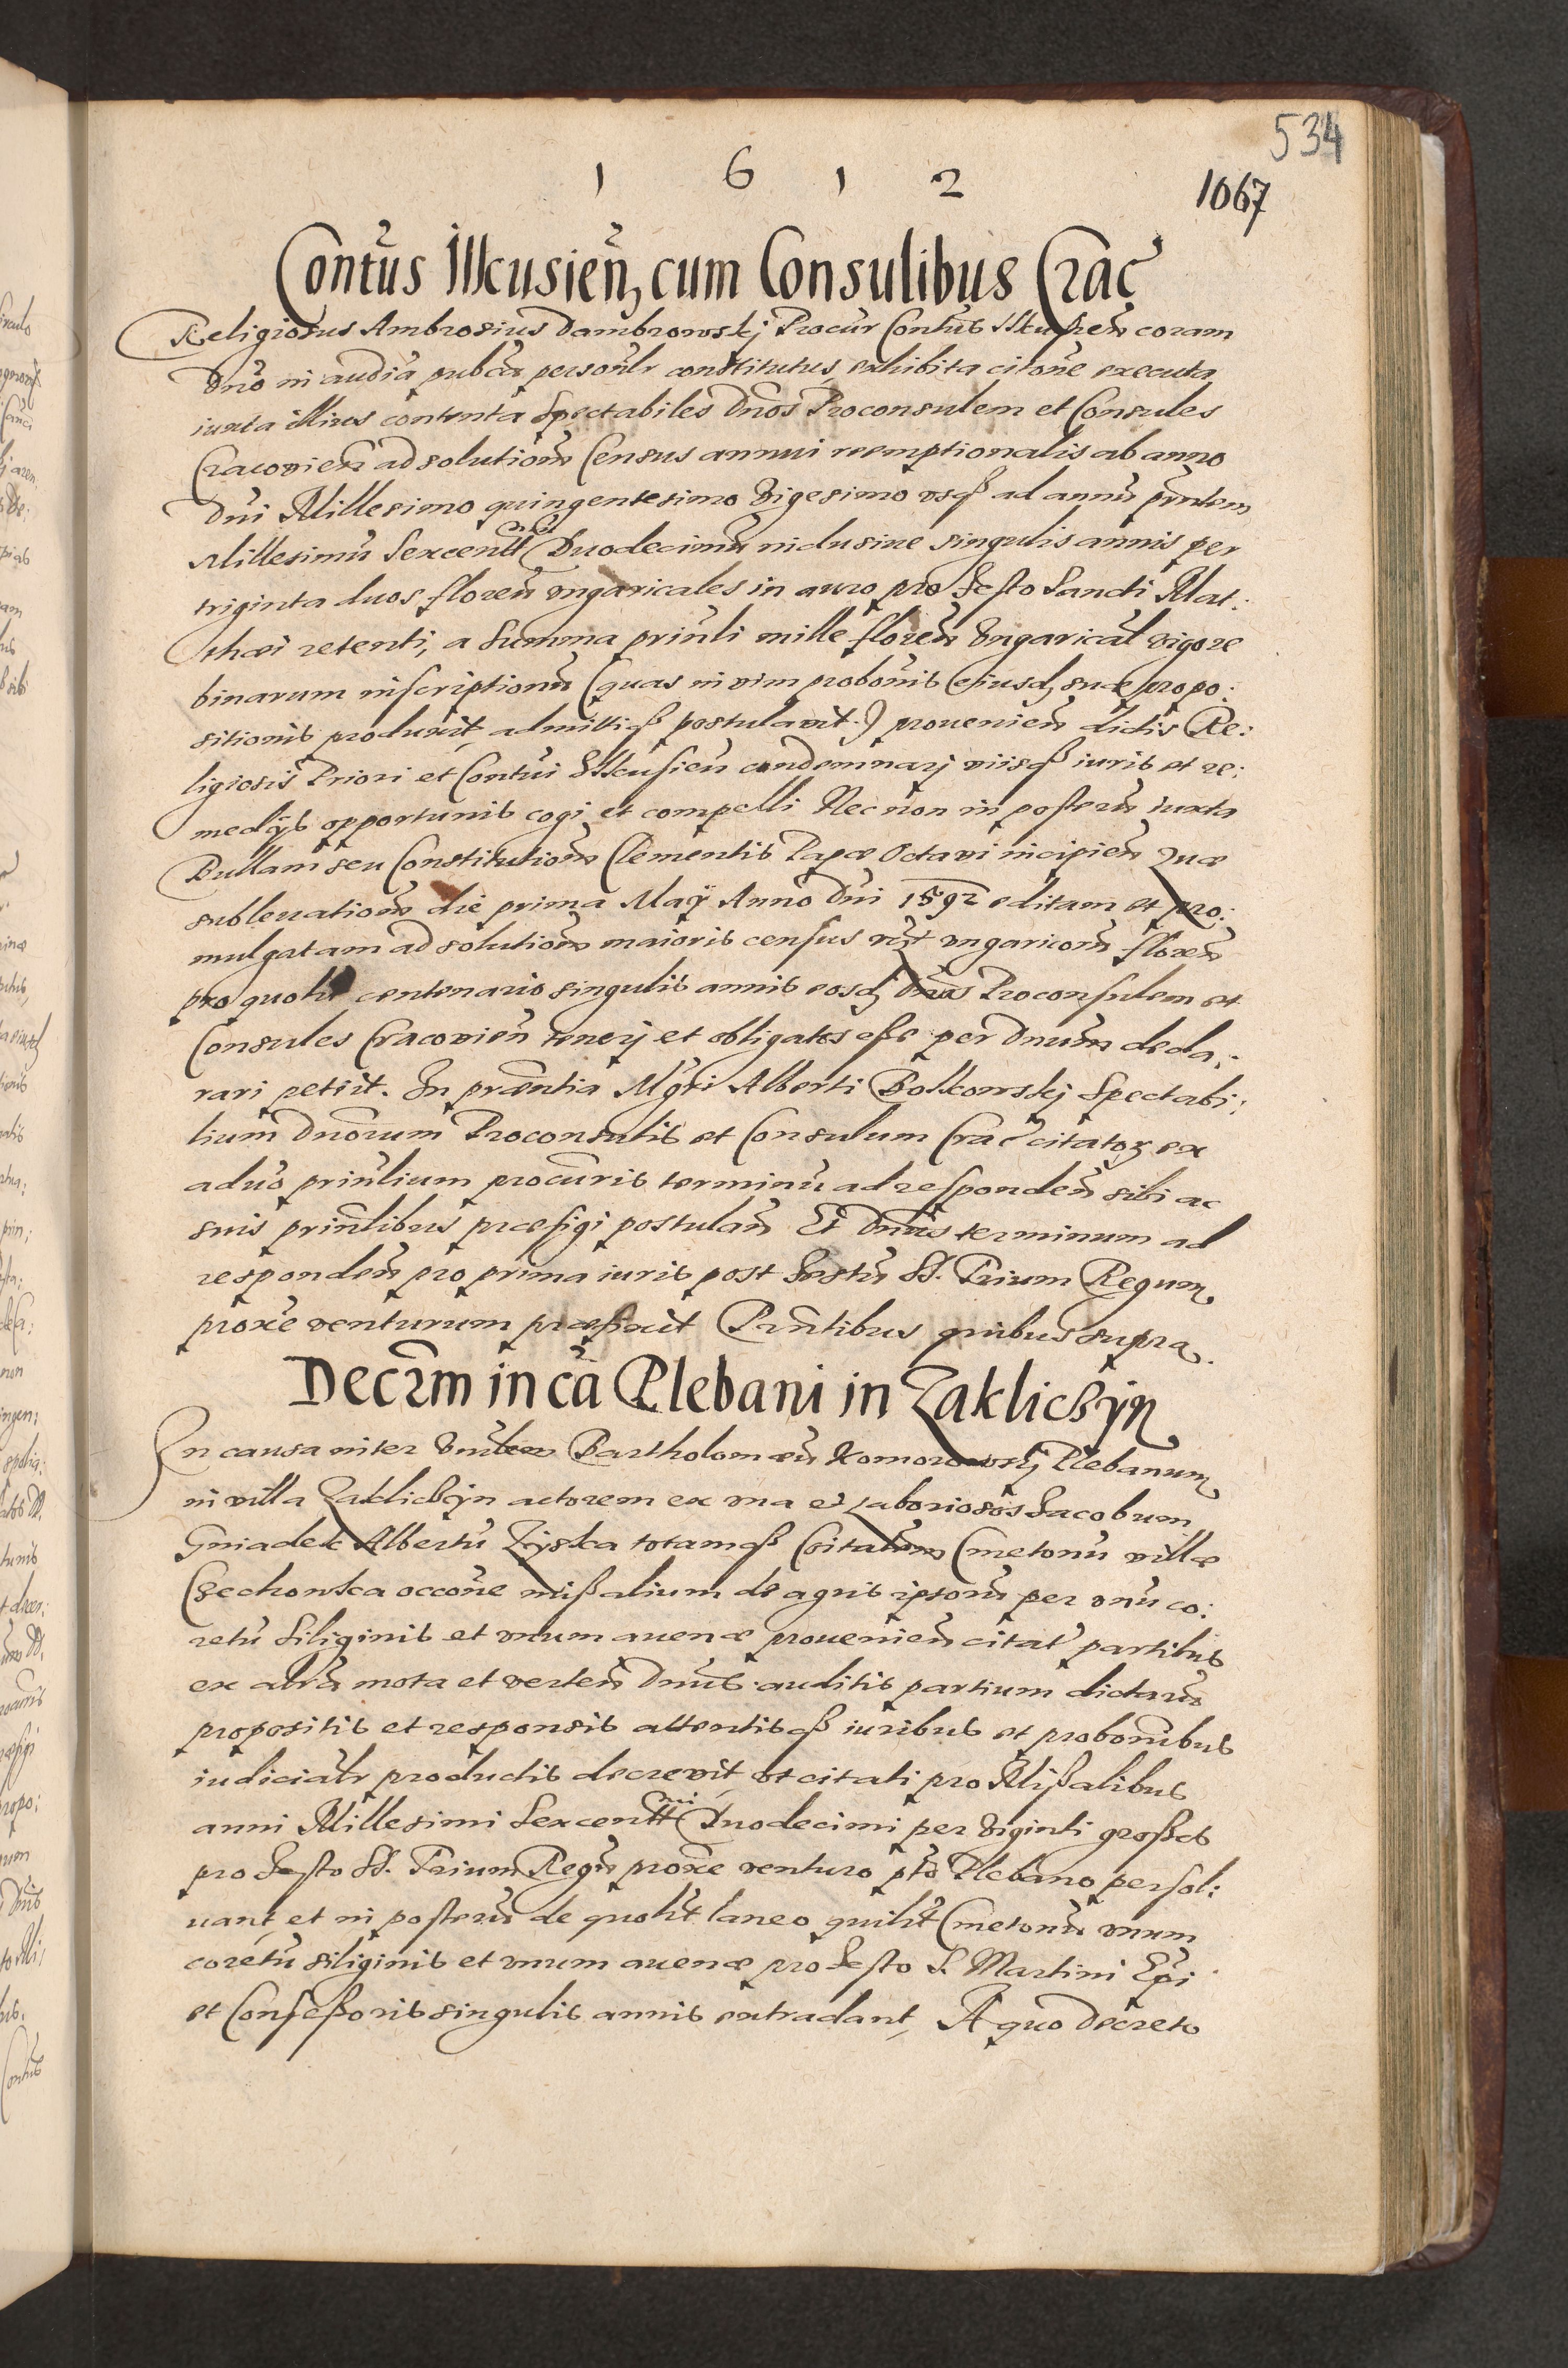 534
1 6 1 2
1067
Contus Illcusien, cum Consulibus Crac
Religiosus Ambrosius Dambrowskj Procur Contus Ilkusien coram
Dno in audia publica personlr constitutus, exhibita citone executa
iuxta illius contenta Spectabiles Dnos Proconsulem et Consules
Cracovien ad solutionem Census annui reemptionalis ab anno
Dni Millesimo quingentesimo Vigesimo usq ad annu prntem
Millesimu Sexcentt Duodecimu inclusiue singulis annis per
triginta duos floren ungaricales in auro pro Festo Sancti Mat:
thæi retenti, a Summa prinli mille floren Ungarical vigore
binarum inscriptionu (quas in vim probonis ejusd suæ propo:
sitionis produxit, admittiq postulavit.) prouenien dictis Re:
ligiosis Priori et Contui Illcusien condemnarj viisq iuris et re:
medijs opportunis cogi et compelli Nec non in posteru iuxta
Bullam seu Constitutionem Clementis Papæ Octavi incipien Quæ
subleuationem die prima Maij Anno Dni 1592 editam et pro:
mulgatam ad solutionem maioris census vzt ungaricoru floren
pro quolt centenario singulis annis eosd Dnos Proconsulem et
Consules Cracovien tenerj et obligatos esse per Dnum decla:
rari petiit. In præntia Mgri Alberti Bolkowskj Spectabi:
lium Dnorum Proconsulis et Consulum Crac citatoz ex
aduo prinlium procuris terminu ad responden sibi ac
suis prinlibus præfigi postulan Et Dnus terminum ad
responden pro prima iuris post Festu SS. Trium Regum
proxe venturum præfixit Præntibus quibus supra.
Decrm in ca Plebani in Zaklichijn
In causa inter Vnlem Bartholomæu Komorowskj Plebanum
in villa Zaklichijn actorem ex una et Laboriosos Jacobum
Gniadek Albertu Zyska totamq Coitatem Cmetonu villæ
Czechowka occone missalium de agris ipsoru per unu co:
retu siliginis et unum auenæ prouenien citat partibus
ex altra mota et verten Dnus auditis partium dictaru
propositis et responsis attentisq iuribus et probonibus
iudicialr productis decrevit, ut citati pro Missalibus
anni Millesimi Sexcentt mi Duodecimi per Viginti grossos
pro Festo SS. Trium Regu proxe venturo pto Plebano persol:
uant, et in posteru de quolt laneo quilt Cmetonu unum
coretu siliginis et unum auenæ pro Festo S. Martini Epi
et Confessoris singulis annis extradant, A quo Decreto